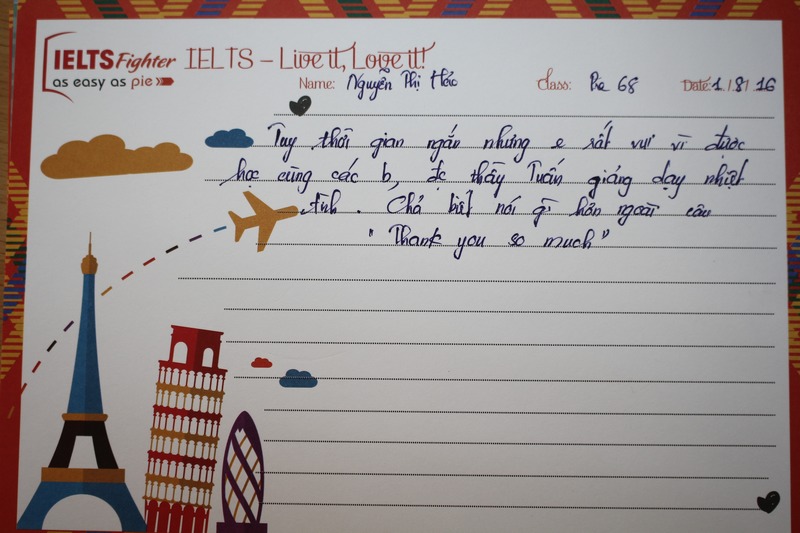 IELTS Fighter
as easy as pie
IELTS – Live it, Love it!
Name: Nguyễn Thị Hảo Class: Pre 68 Date: 1/8/16
Tuy thời gian ngắn nhưng e rất vui vì được
học cùng các b, đc thầy Tuấn giảng dạy nhiệt
tình. Chả biết nói gì hơn ngoài câu
"Thank you so much"